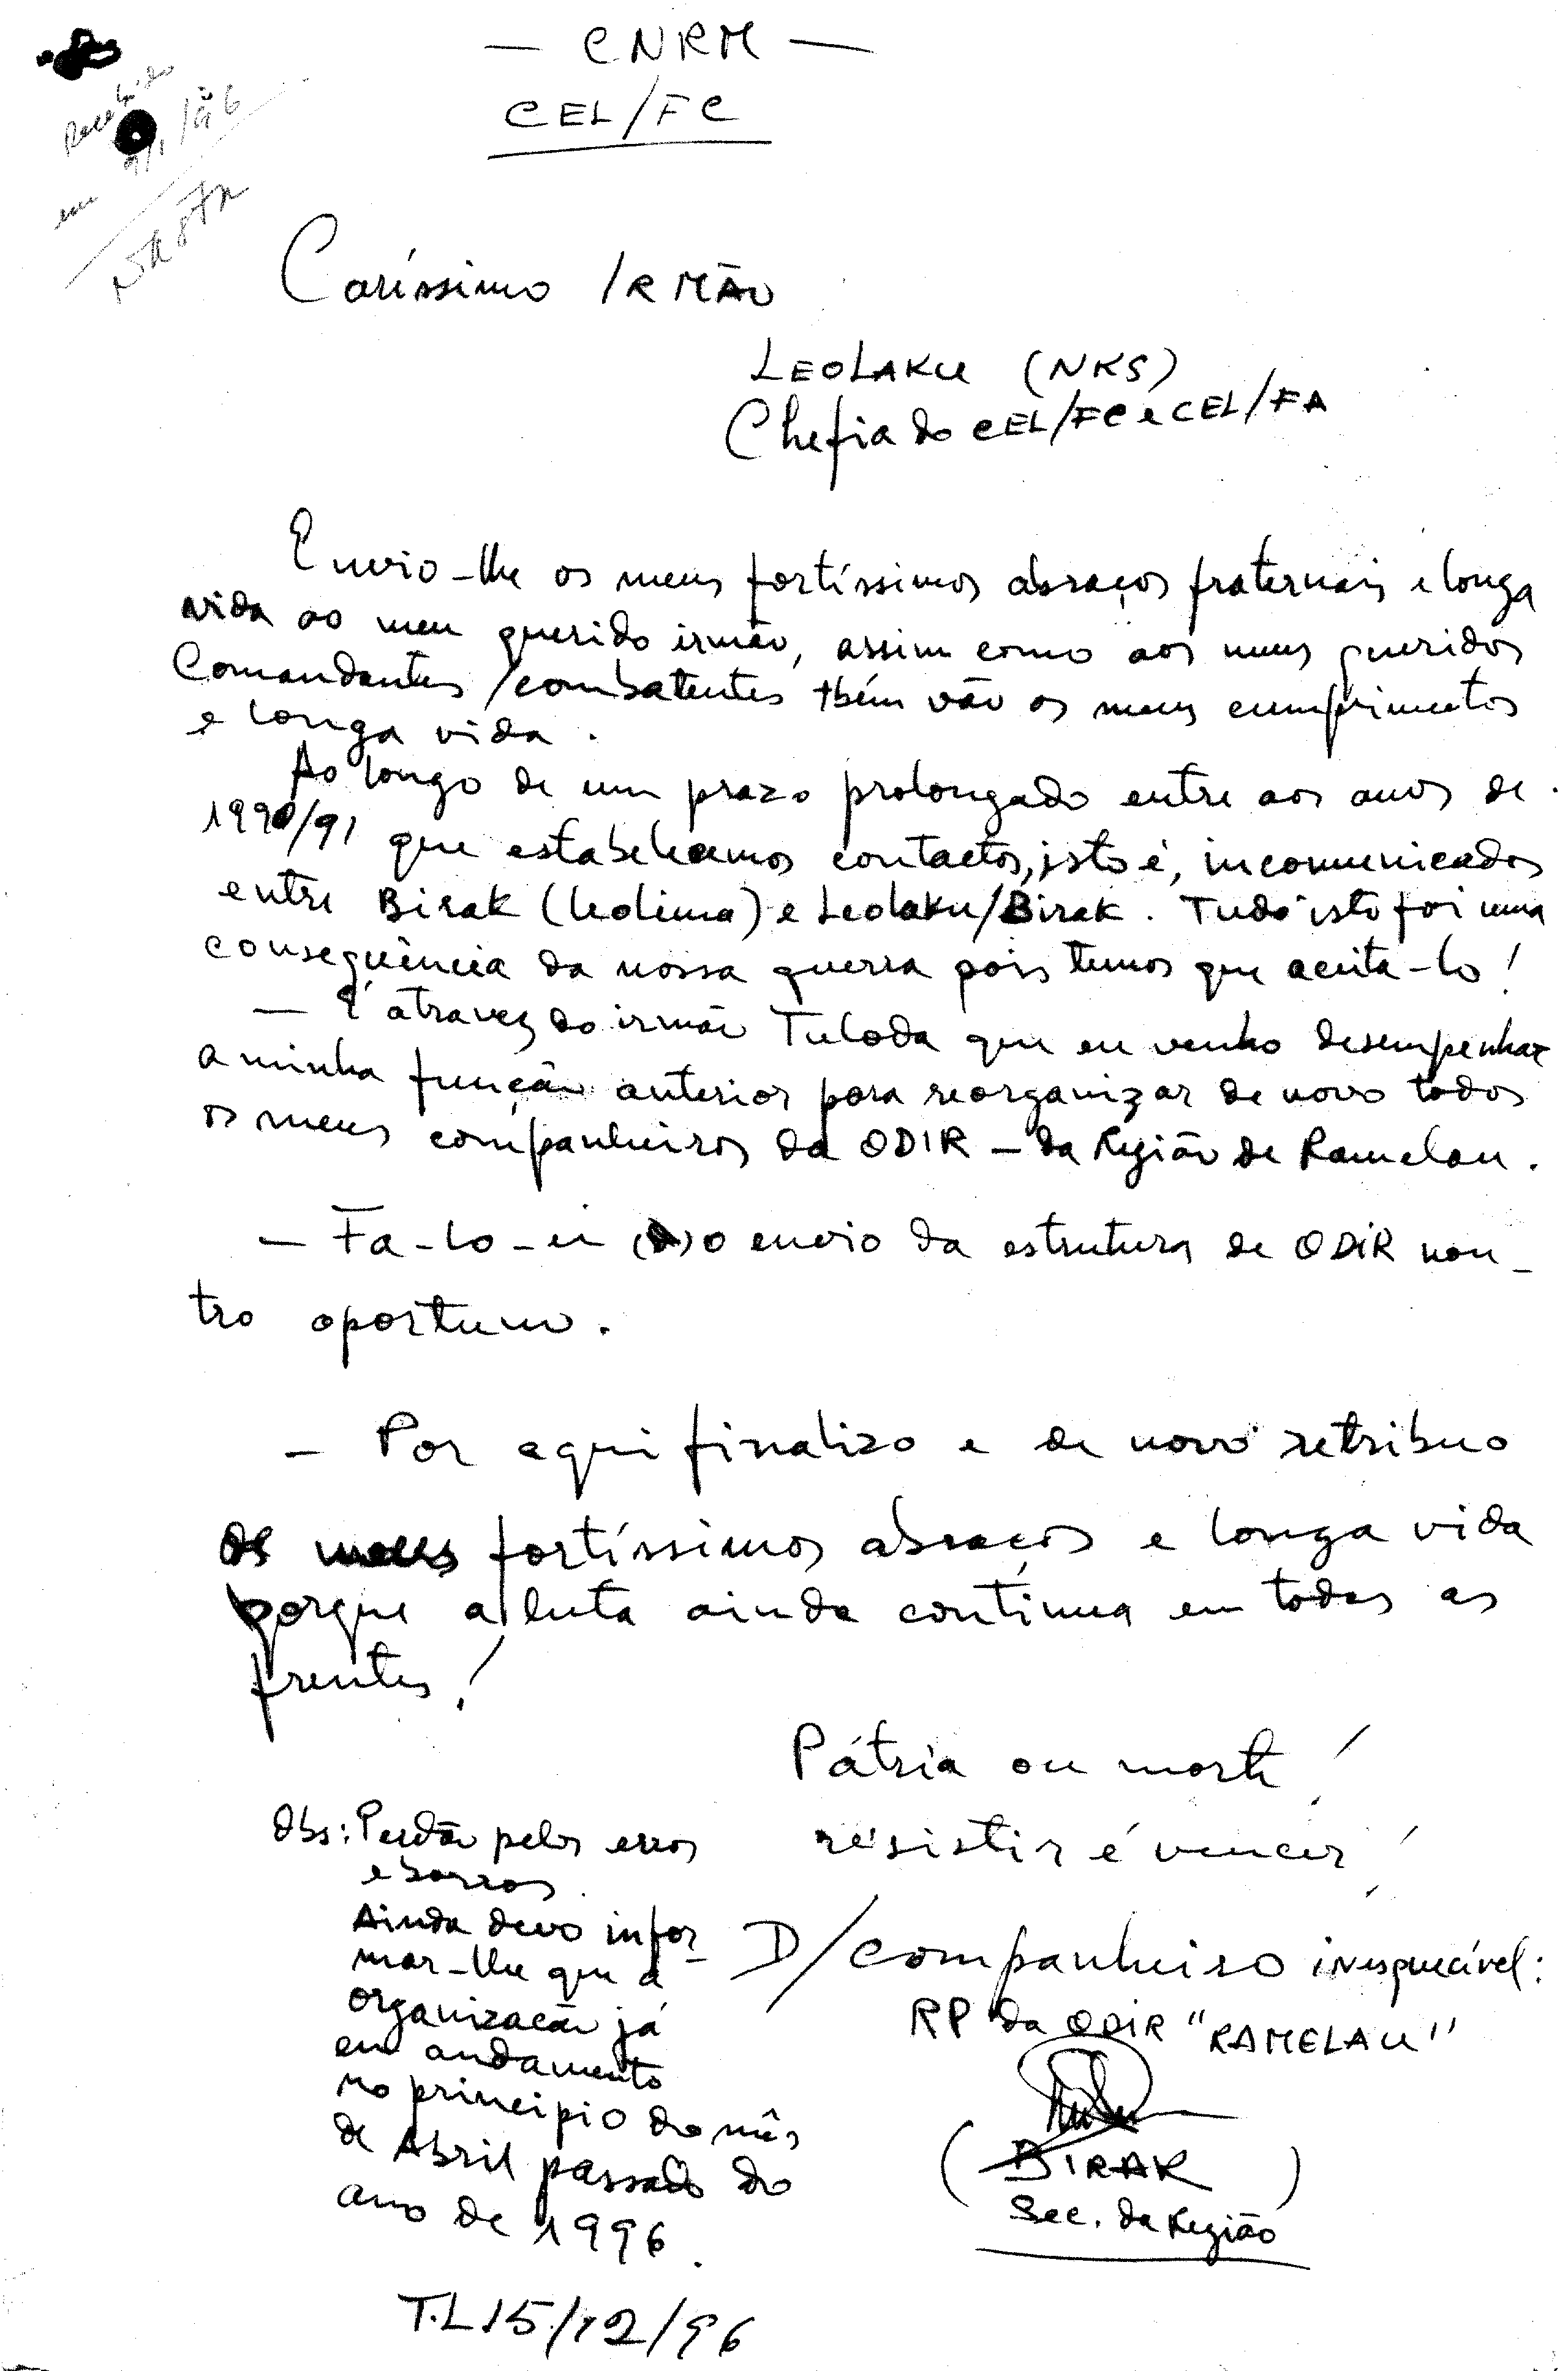 — CNRM —
CEL/FC
Recebido
em
Caríssimo IRMÃO
LEOLAKU (NKS)
Chefia do CEL/FC e CEL/FA
Envio-lhe os meus fortíssimos abraços fraternais e longa
vida ao meu querido irmão, assim como aos meus queridos
Comandantes/combatentes tbém vão os meus cumprimentos
e longa vida.
Ao longo de um prazo prolongado entre aos anos de
1990/91 que estabelecemos contactos, isto é, incomunicados
entre Birak (leolima) e Leolaku/Birak. Tudo isto foi uma
conseqüência da nossa guerra pois temos que aceita-lo!
— É atravez do irmão Tuloda que eu venho desempenhar
a minha função anterior para reorganizar de novo todos
os meus companheiros da ODIR — da Região de Ramelau.
— Fa-lo-ei o envio da estrutura de ODIR nou-
tro oportuno.
— Por aqui finalizo e de novo retribuo
os meus fortíssimos abraços e longa vida
porque a luta ainda continua em todas as
frentes!
Pátria ou morte!
resistir é vencer!
D/companheiro inesquecível:
RP da ODIR "RAMELAU"
(BIRAK)
Sec. da Região
Obs: Perdão pelos erros
e borros.
Ainda devo infor-
mar-lhe que a
organização já
em andamento
no principio do mês
de Abril passado do
ano de 1996.
T.L 15/12/96